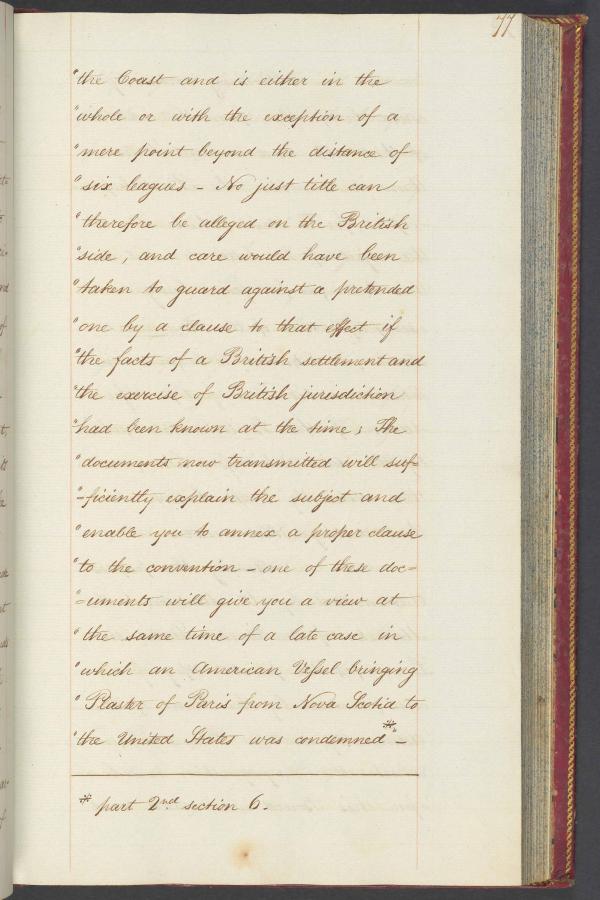 77
"the Coast and is either in the
"whole or with the exception of a
"mere point beyond the distance of
"six leagues - No just title can
"therefore be alleged on the British
"side, and care would have been
"taken to guard against a pretended
"one by a clause to that effect if
"the facts of a British settlement and
"the exercise of British jurisdiction
"had been known at the time; The
"documents now transmitted will suf=
"=ficiently explain the subject and
"enable you to annex a proper clause
"to the convention - one of these doc=
"=uments will give you a view at
"the same time of a late case in
"which an American Veſsel bringing
"Plaster of Paris from Nova Scotia to
"the United States was condemned*" -
* part 2nd section 6.